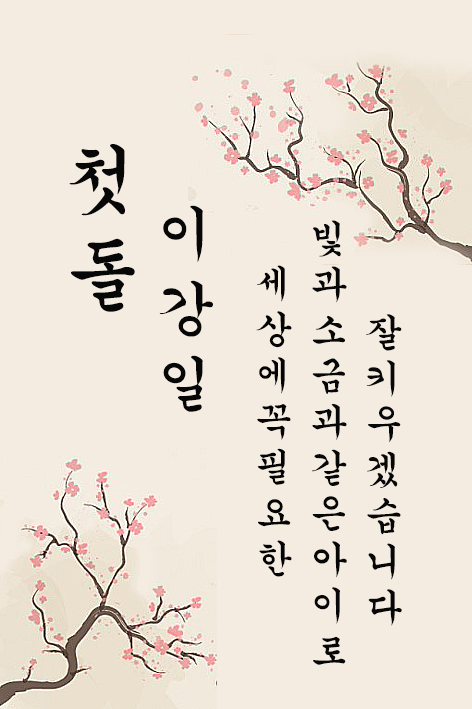 첫돌
이강일
세상에꼭필요한
빛과소금과같은아이로
잘키우겠습니다